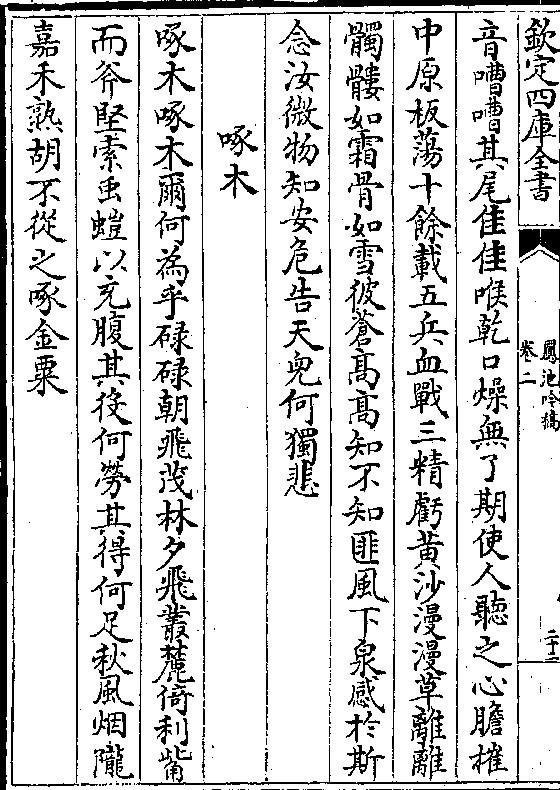 欽定四庫全書
鳳池吟稿
卷二
二十二
音嘈嘈其尾隹隹喉乾口燥無了期使人聽之心膽摧
中原板蕩十餘載五兵血戰三精虧黃沙漫漫草離離
髑髏如霜骨如雪彼蒼高高知不知匪風下泉感於斯
念汝微物知安危告天兒何獨悲
啄木
啄木啄木爾何為乎碌碌朝飛茂林夕飛叢麓倚利觜
而斧堅索虫螘以充腹其役何勞其得何足秋風烟隴
嘉禾熟胡不從之啄金粟